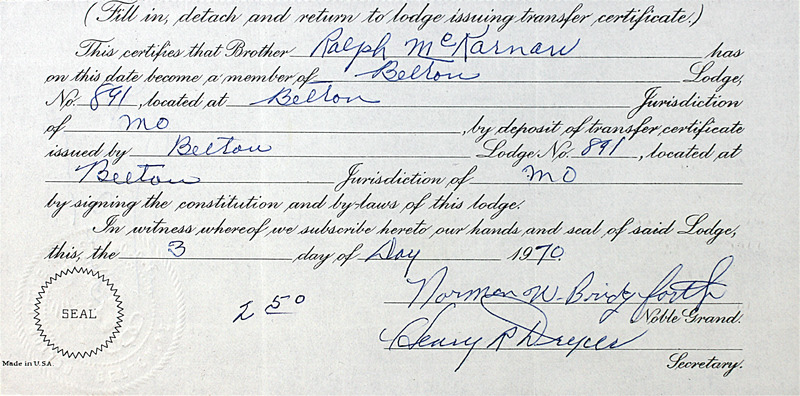 (Fill in, detach and return to lodge issuing transfer certificate.)
This certifies that Brother Ralph McKarnaw has
on this date become a member of Belton Lodge,
No. 891, located at Belton Jurisdiction
of MO, by deposit of transfer certificate
issued by Beeton Lodge No. 891, located at
Beeton Jurisdiction of MO
by signing the constitution and by-laws of this lodge.
In witness whereof we subscribe hereto our hands and seal of said Lodge,
this, the 3 day of Day 1970.
Norman W. Bridgforth
2 50
SEAL
Noble Grand.
Henry
Made in U.S.A.
Secretary.